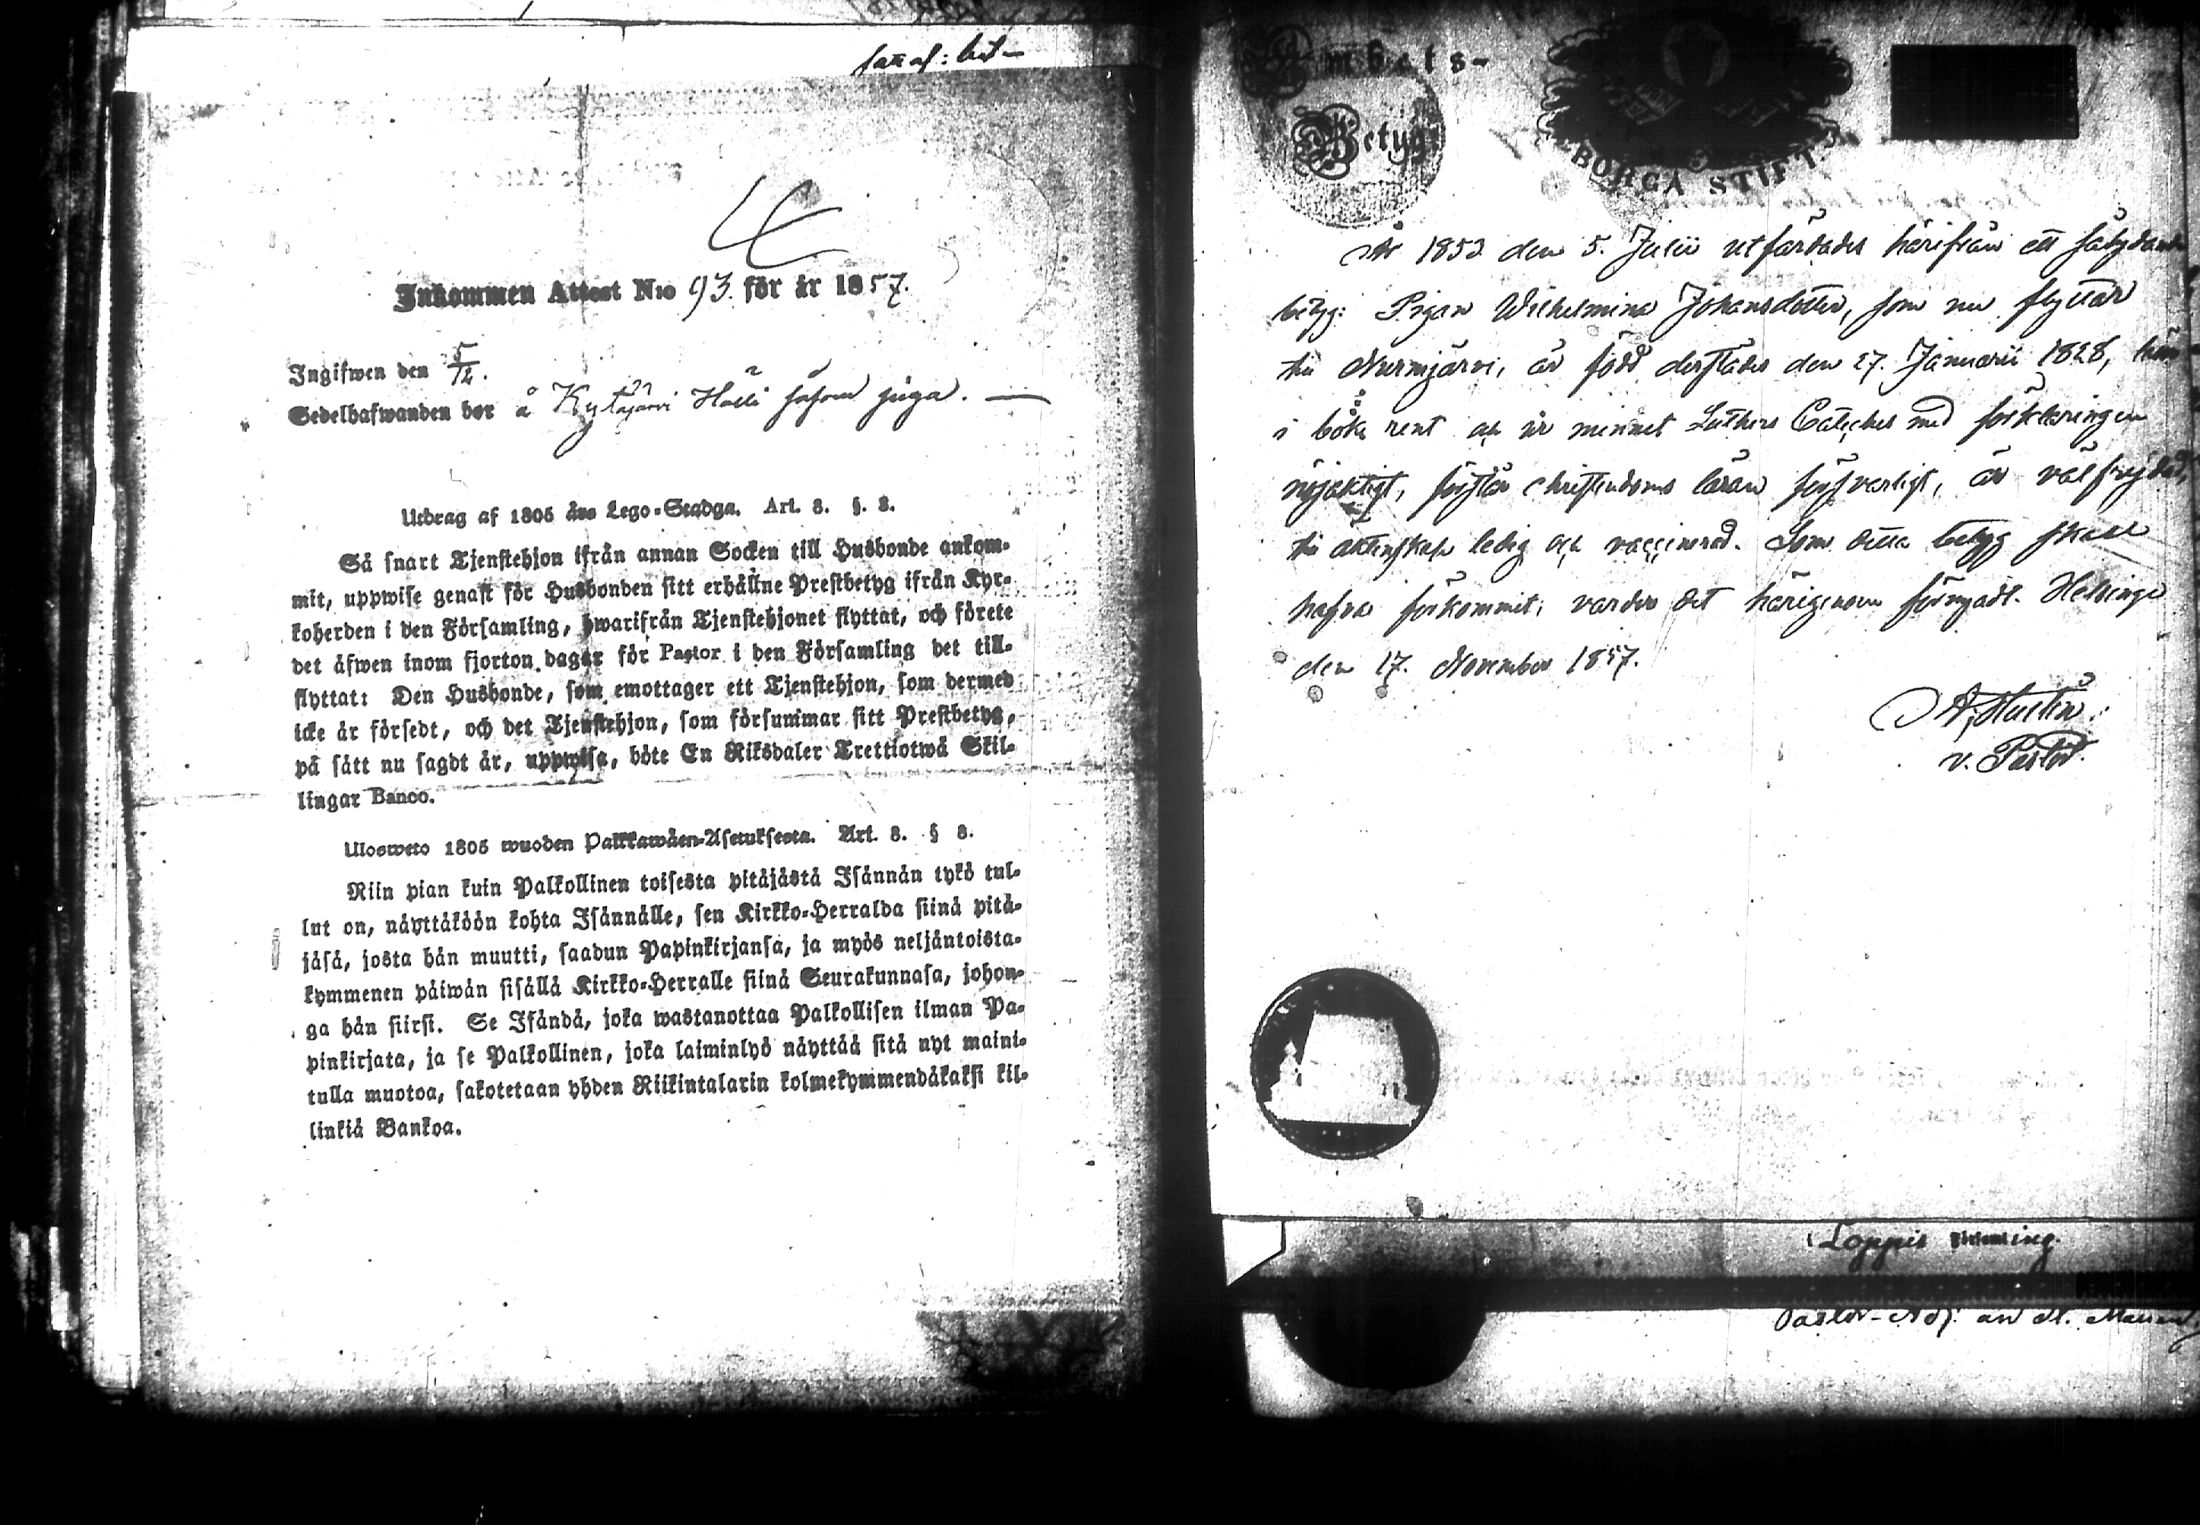 Inkommen Attest N:o 93. för år 1857.
Ingifwen den 5/12.
Sedelhafwanden bor å Kytäjärvi Hälli såsom piga.
Utdrag af 1805 års Lego-Stadga. Art. 8. §. 8.
Så snart Tjenstehjon ifrån annan Socken till Husbonde ankom-
mit, uppwise genast för Husbonden sitt erhållne Prestbetyg ifrån Kyr-
koherden i den Församling, hwarifrån Tjenstehjonet flyttat, och förete
det äfwen inom fjorton dagar för Pastor i den Församling det till-
flyttat: Den Husbonde, som emottager ett Tjenstehjon, som dermed
icke är försedt, och det Tjenstehjon, som försummar sitt Prestbetyg,
på sätt nu sagdt är, uppwisa, böte En Riksdaler Trettiotwå Skil-
lingar Banco.
Ulosweto 1805 wuoden Palkkawäen-Asetuksesta. Art. 8. § 8.
Niin pian kuin Palkollinen toisesta pitäjästä Isännän tykö tul-
lut on, näyttäköön kohta Isännälle, sen Kirkko-Herralda siinä pitä-
jäsä, josta hän muutti, saadun Papinkirjansa, ja myös neljäntoista-
kymmenen päiwän sisällä Kirkko-Herralle siinä Seurakunnasa, johon-
ga hän siirsi. Se Isändä, joka wastanottaa Palkollisen ilman Pa-
pinkirjata, ja se Palkollinen, joka laiminlyö näyttää sitä nyt maini-
tulla muotoa, sakotetaan yhden Riikintalarin kolmekymmendäkaksi kil-
linkiä Bankoa.
Embets-
Betyg
BORGÅ STIFT.
År 1853 den 5. Julii utfärdades härifrån ett sålydande
betyg: Pigan Wilhelmina Johansdotter, som nu flyttar
till Nurmijärvi, är född derstädes den 27. Januarii 1828, läser
i bok rent och ur minnet Luthers Cateches med förklaringen
nöjaktigt, förstår christendoms läran försvarligt, är välfrejdad,
till äktenskap ledig och vaccinerad. Som detta betyg skall
hafva förkommit, varder det härigenom förnyadt. Helsinge
den 17. November 1857.
v. Pastor.
i Loppis Församling.
Pastor-Adj.